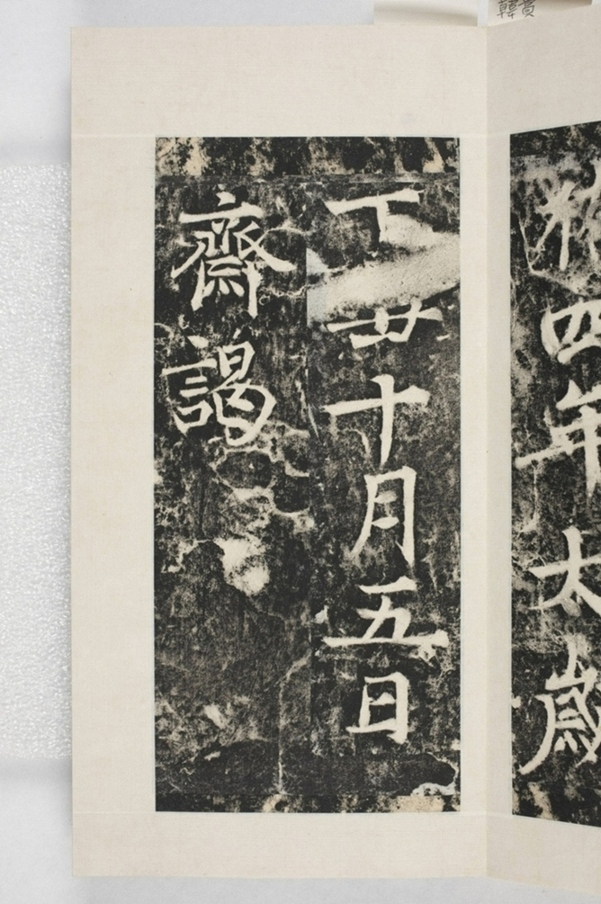 四年太歲
丁丑十月五日
齋謁